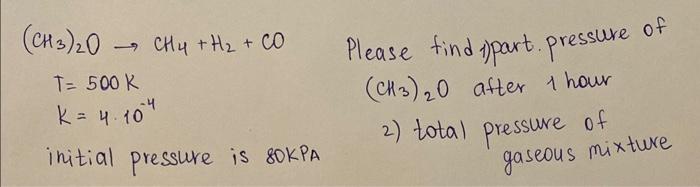 (CH3)2O → CH4 + H2 + CO
T = 500 K
K = 4·10⁻⁴
initial pressure is 80KPA
Please find 1)part. pressure of
(CH3)2O after 1 hour
2) total pressure of
gaseous mixture